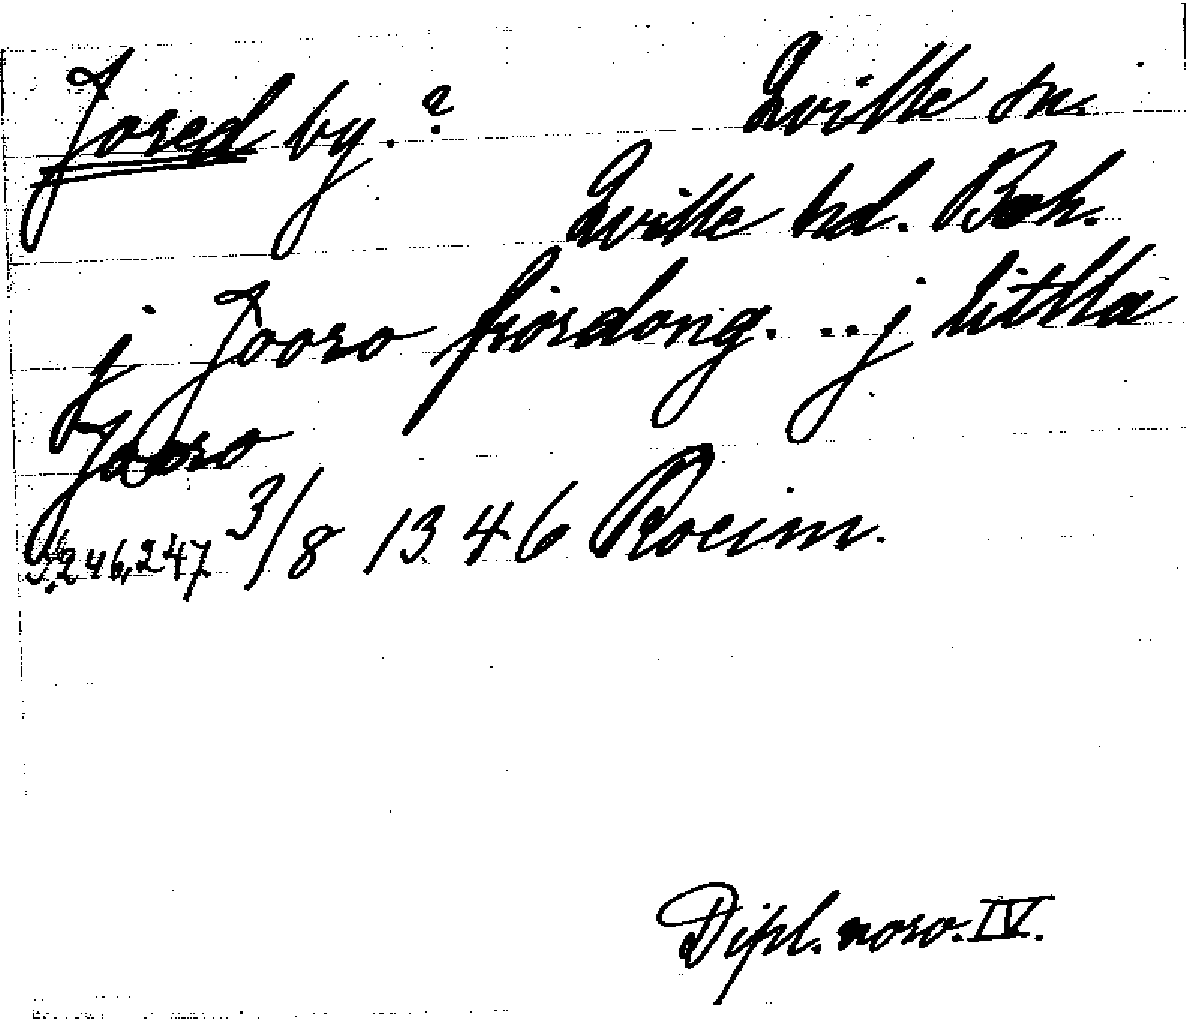 Jored by. ?
Qville sn.
Qville hd. Boh.
j Jooro fiordong. ... j litlla
Jooro
S. 246, 247 3/8 1346 Kocim.
Dipl. norv. IV.